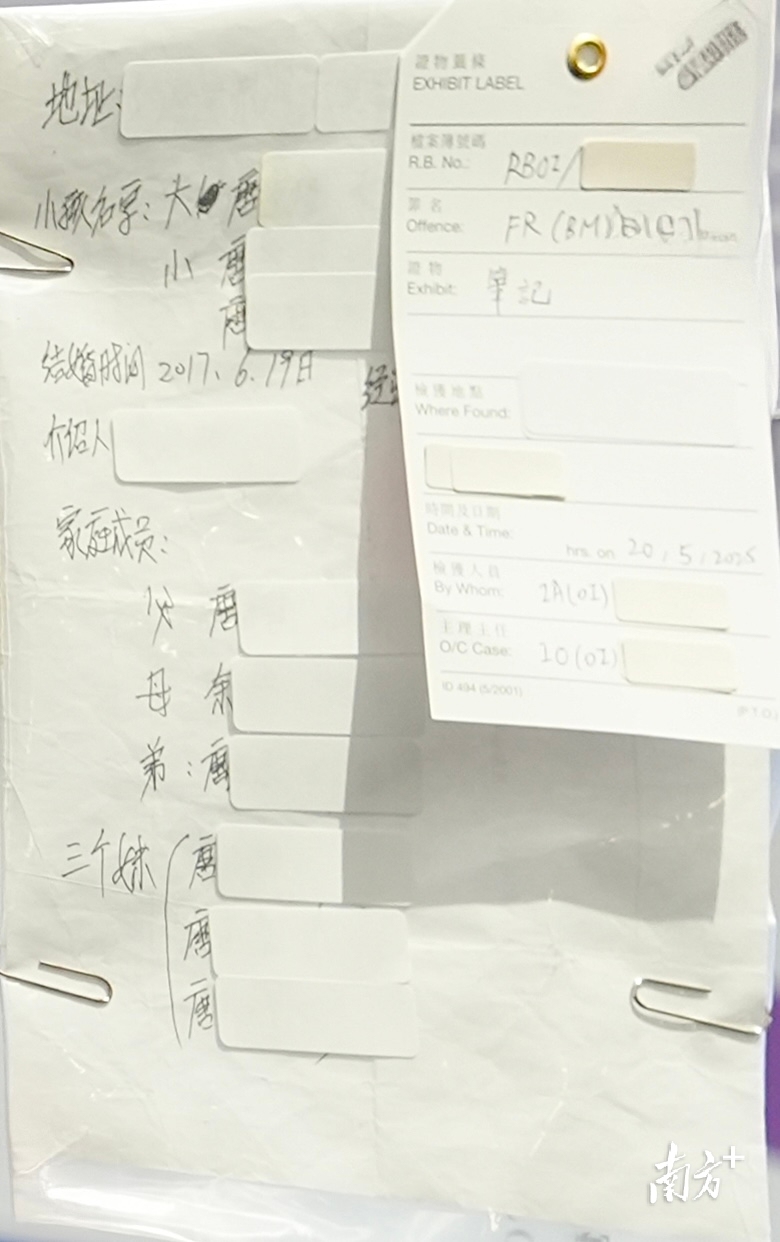 地址:
小孩名字: 大 唐
小 唐
唐
结婚时间 2017. 6. 19日
介绍人
家庭成员:
父 唐
母 余
弟: 唐
三个妹 唐
唐
唐
EXHIBIT LABEL
檔案簿號碼
R.B. No.: RBOI/
罪名
Offence: FR (BM)
證物
Exhibit: 筆記
檢獲地點
Where Found:
時間及日期
Date & Time: hrs. on 20/5/2025
檢獲人員
By Whom: IA(OI)
主理主任
O/C Case: IO(OI)
ID 494 (5/2001)
(P.T.O.)
南方+